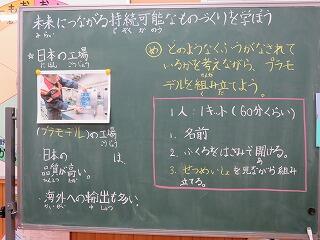 未来につながる持続可能なものづくりを学ぼう
みらい
じぞくかのう
☆日本の工場
にほん こうじょう
(プラモデル)の工場
こうじょう
日本の は、
品質が高い。
ひんしつ たか
・海外への輸出も多い。
かいがい ゆしゅつ おお
め どのようなくふうがなされて
いるかを考えながら、プラモ
デルを組み立てよう。
1人:1キット(60分くらい)
1. 名前
2. ふくろをはさみで開ける。
あ
3. せつめいしょを見ながら組み
立てる。